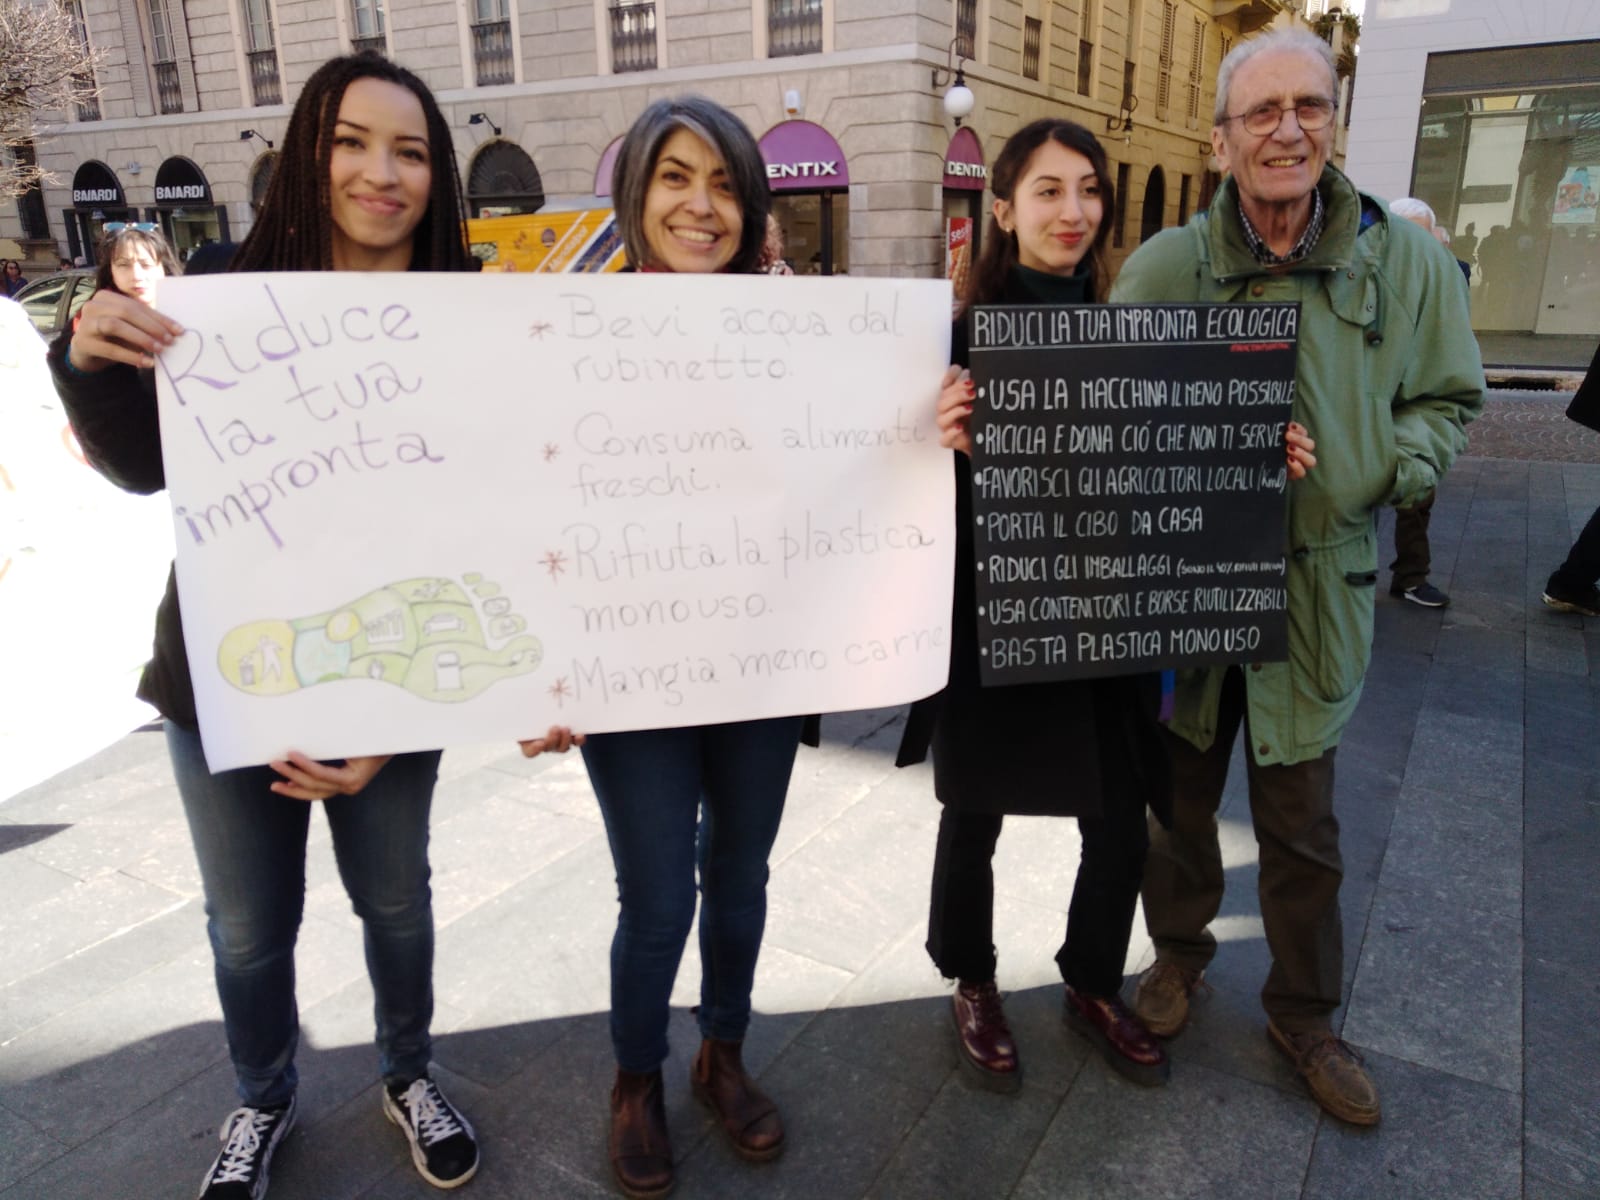 BAJARDI
BAJARDI
ENTIX
DENTIX
Riduce
la tua
impronta
* Bevi acqua dal
rubinetto.
* Consuma alimenti
freschi.
* Rifiuta la plastica
monouso.
* Mangia meno carne
RIDUCI LA TUA IMPRONTA ECOLOGICA
• USA LA MACCHINA IL MENO POSSIBILE
• RICICLA E DONA CIÓ CHE NON TI SERVE
• FAVORISCI GLI AGRICOLTORI LOCALI (Km0)
• PORTA IL CIBO DA CASA
• RIDUCI GLI IMBALLAGGI (SONO IL 40% RIFIUTI
• USA CONTENITORI E BORSE RIUTILIZZABILI
• BASTA PLASTICA MONOUSO